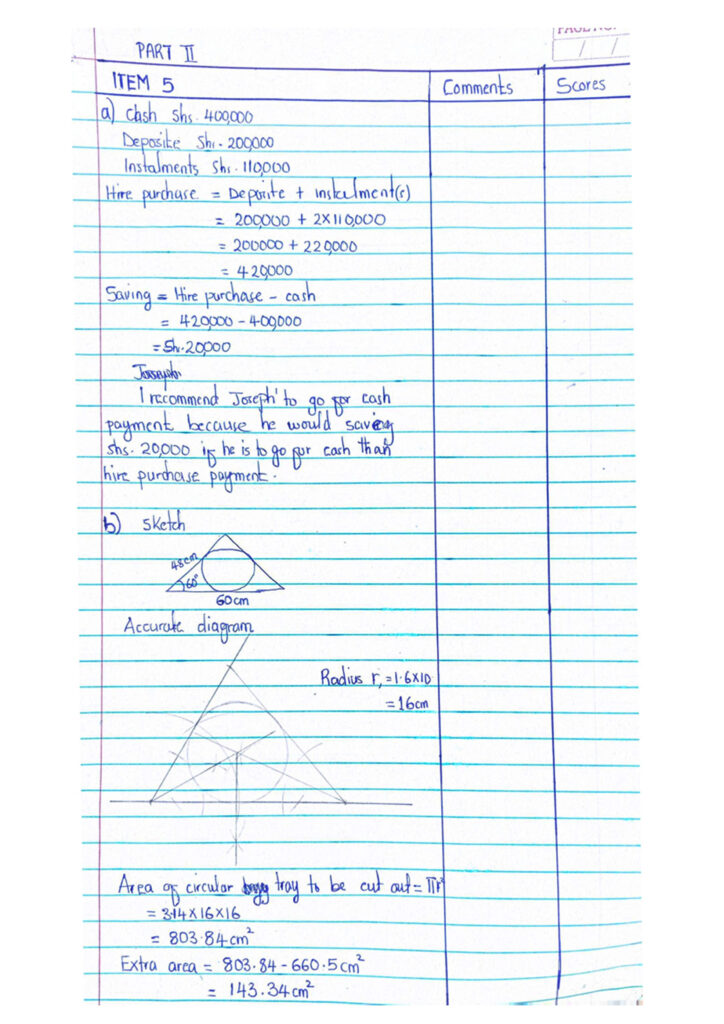 PART II
/ /
ITEM 5 Comments Scores
a) Cash Shs. 400,000
Deposite Shs. 200,000
Instalments Shs. 110,000
Hire purchase = Deposite + instalment(s)
= 200,000 + 2×110,000
= 200000 + 220,000
= 420,000
Saving = Hire purchase - cash
= 420,000 - 400,000
= Sh. 20,000
I recommend Joseph' to go for cash
payment because he would saving
shs. 20,000 if he is to go for cash than
hire purchase payment.
b) Sketch
48cm
60°
60cm
Accurate diagram
Radius r, = 1.6×10
= 16cm
Area of circular tray to be cut out = πr²
= 3.14×16×16
= 803.84cm²
Extra area = 803.84 - 660.5cm²
= 143.34cm²